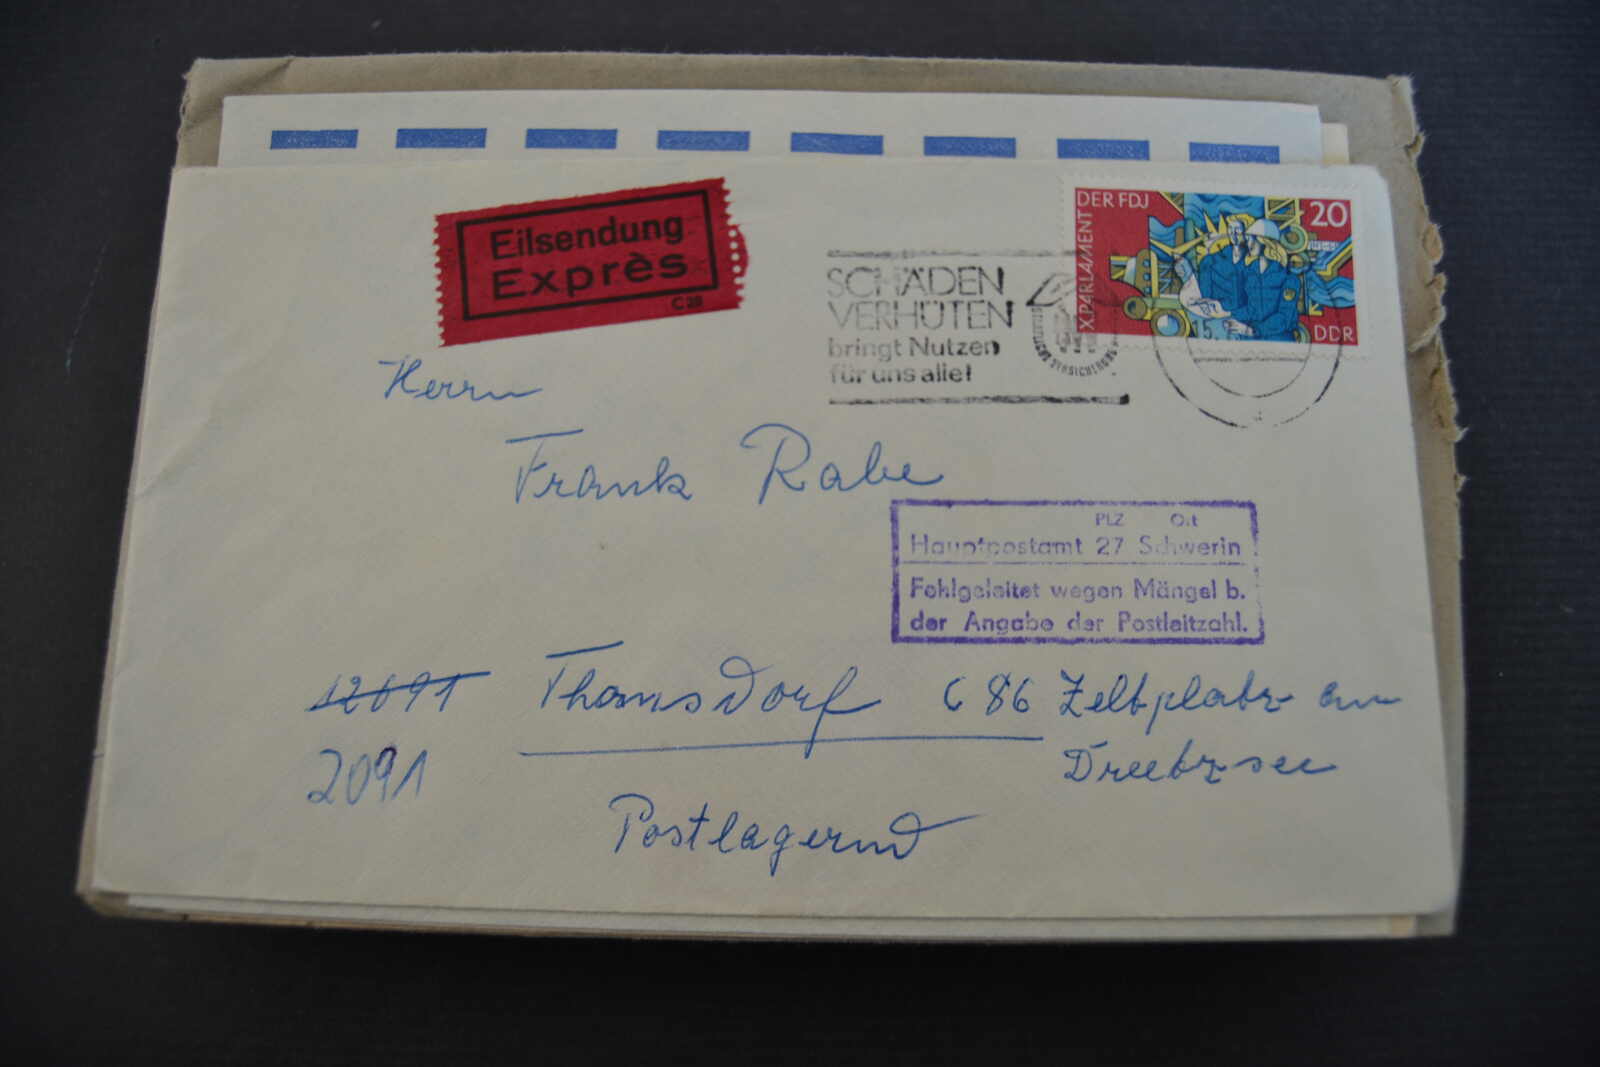 Eilsendung
Exprès
C 28
X. PARLAMENT
DER FDJ
20
DDR
SCHÄDEN
VERHÜTEN
bringt Nutzen
für uns alle!
STAATLICHE VERSICHERUNG
15.
Herrn
Frank Rabe
PLZ Ort
Hauptpostamt 27 Schwerin
Fehlgeleitet wegen Mängel b.
der Angabe der Postleitzahl.
12091 Thomsdorf C 86 Zeltplatz am
2091 Dreetzsee
Postlagernd